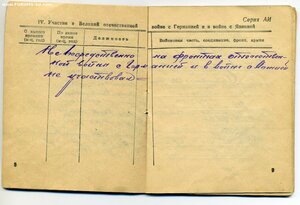 Серия АИ
IV. Участие в Великой отечественной войне с Германией и в войне с Японией
С какого времени (м-ц, год)
По какое время (м-ц, год)
Должность
Войсковая часть, соединение, фронт, армия
Непосредственно на фронтах отечествен-
ной войны с Германией и в войне с Японией
не участвовал
8
9